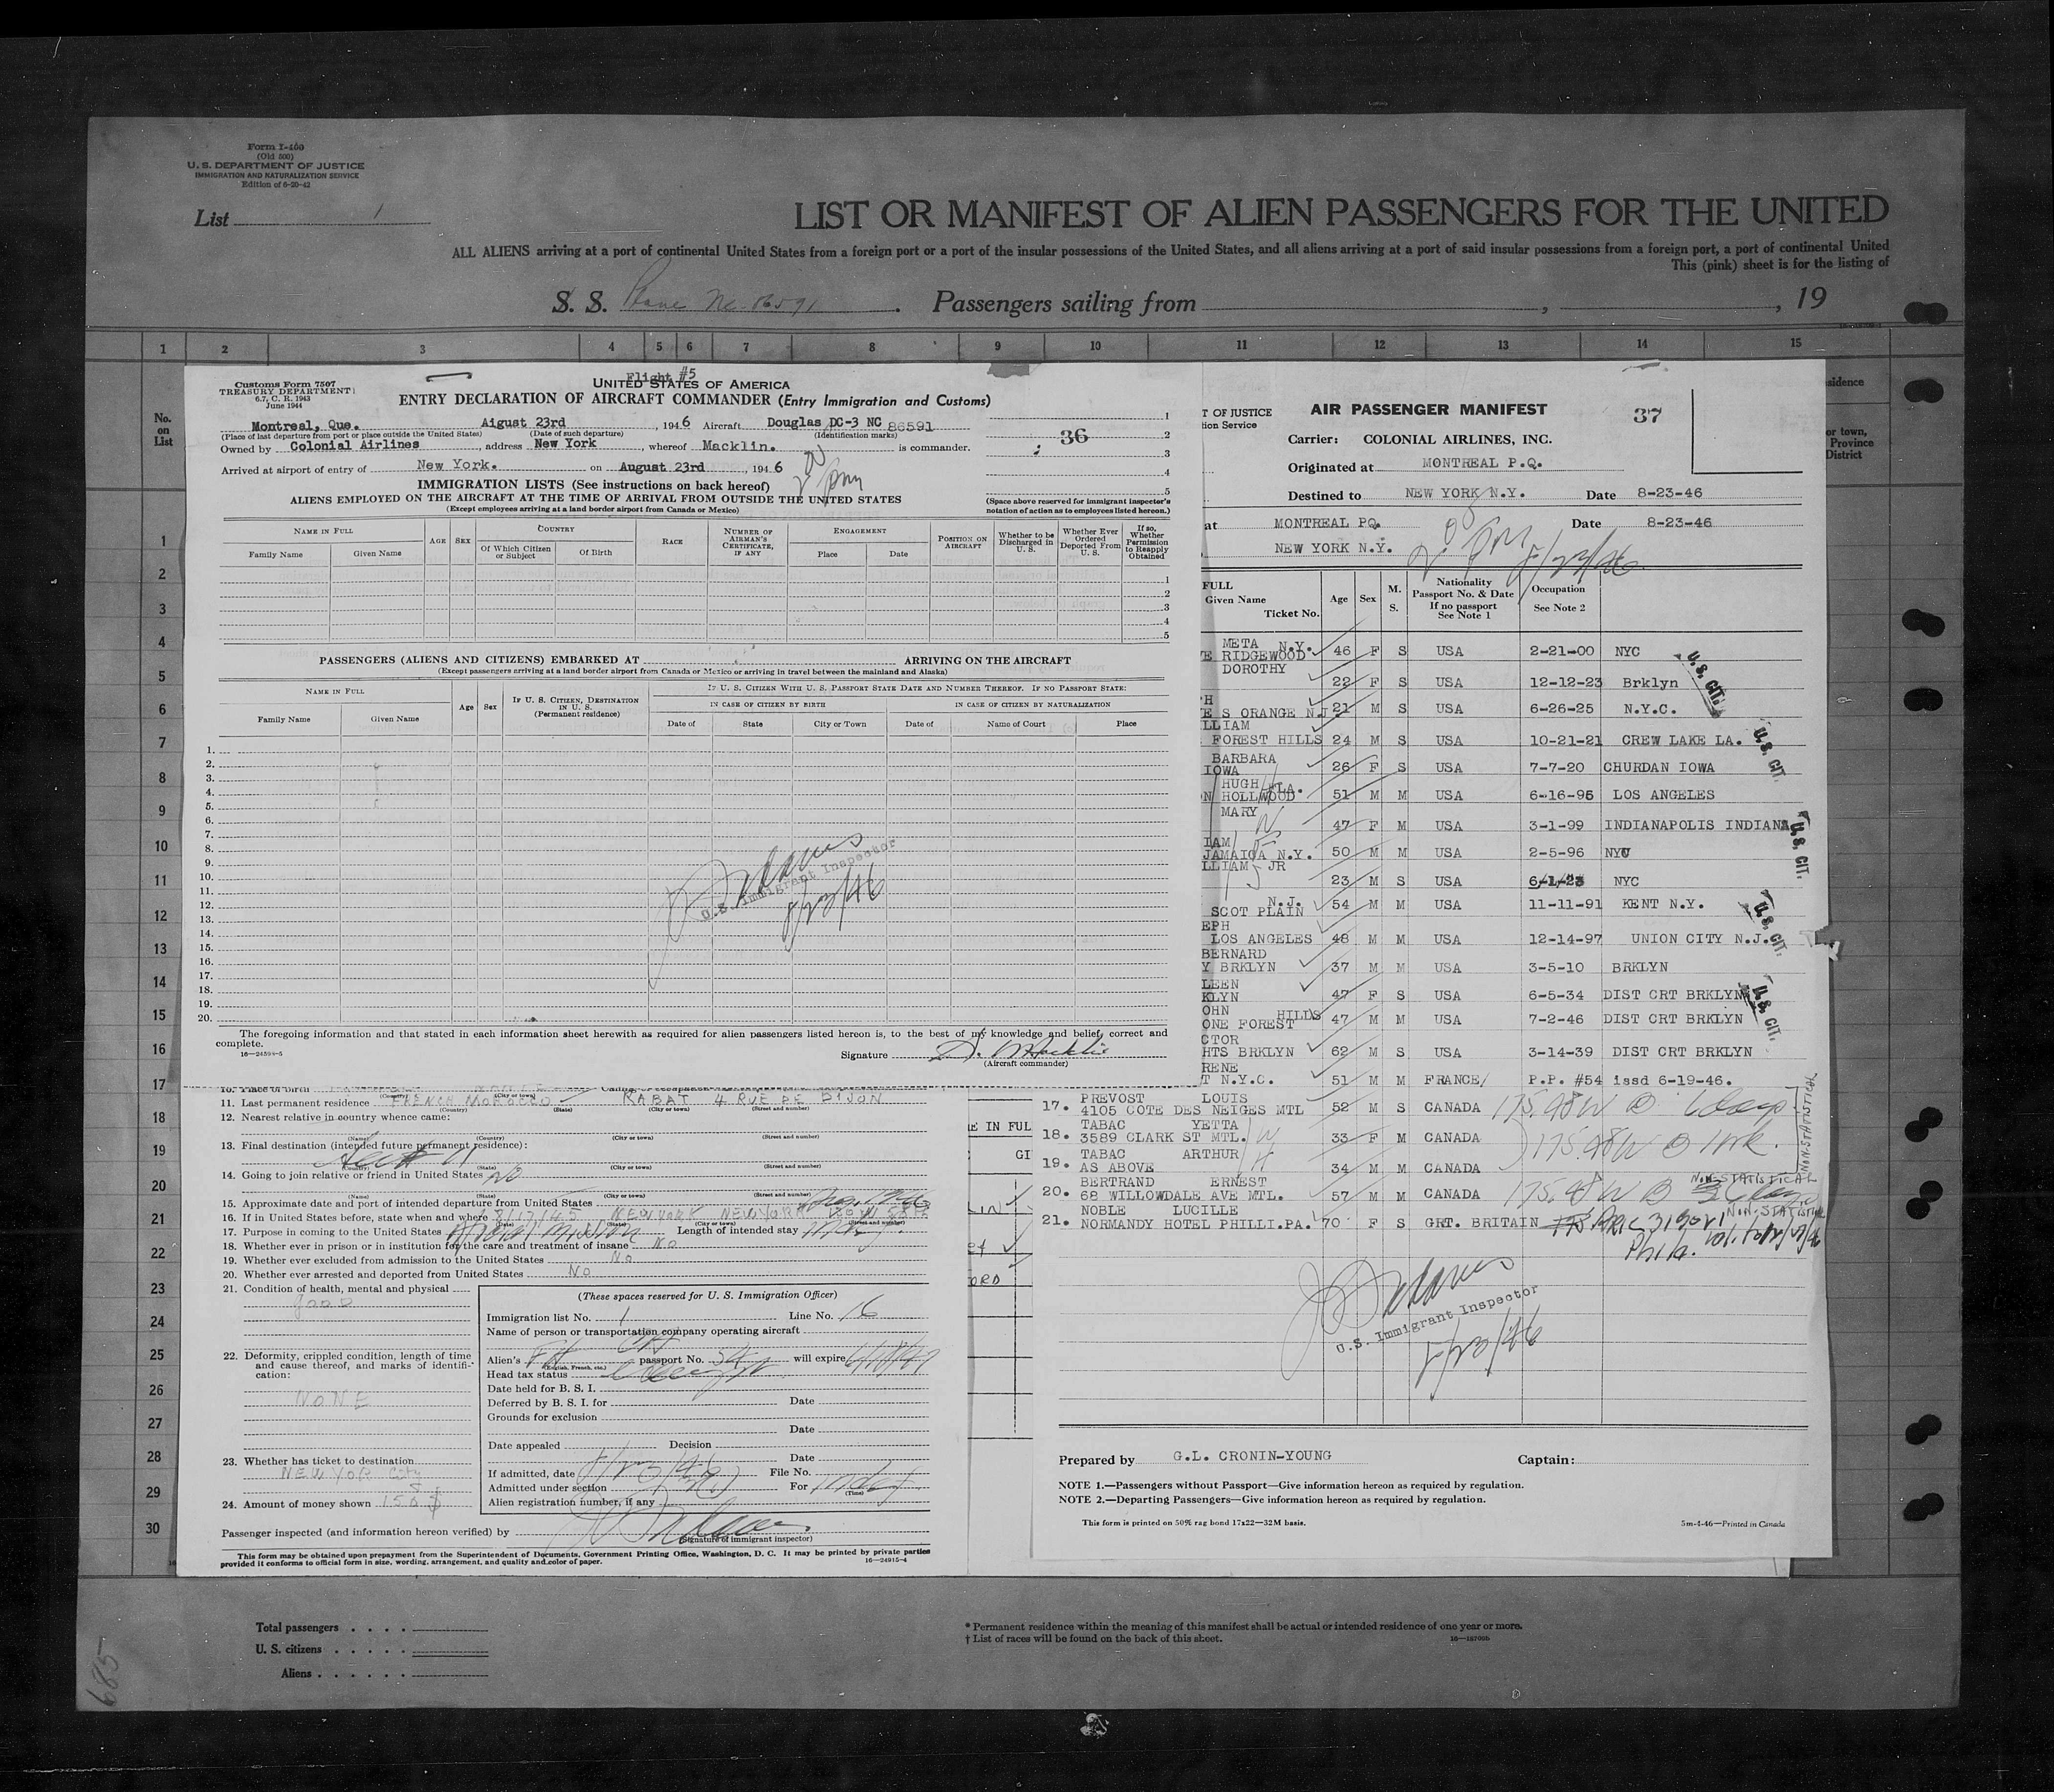 Form I-400
(Old 500)
U. S. DEPARTMENT OF JUSTICE
IMMIGRATION AND NATURALIZATION SERVICE
Edition of 6-20-42
List 1
LIST OR MANIFEST OF ALIEN PASSENGERS FOR THE UNITED
ALL ALIENS arriving at a port of continental United States from a foreign port or a port of the insular possessions of the United States, and all aliens arriving at a port of said insular possessions from a foreign port, a port of continental United
This (pink) sheet is for the listing of
S. S. Plane NC-86591. Passengers sailing from , , 19
1 2 3 4 5 6 7 8 9 10 11 12 13 14 15
No. on List
1
2
3
4
5
6
7
8
9
10
11
12
13
14
15
16
17
18
19
20
21
22
23
24
25
26
27
28
29
30
Customs Form 7507
TREASURY DEPARTMENT
6.7, C. R. 1943
June 1944
Flight #5
UNITED STATES OF AMERICA
ENTRY DECLARATION OF AIRCRAFT COMMANDER (Entry Immigration and Customs)
Montreal, Que. Aigust 23rd, 1946 Aircraft Douglas DC-3 NC 86591
(Place of last departure from port or place outside the United States) (Date of such departure) (Identification marks)
Owned by Colonial Airlines, address New York, whereof Macklin. is commander.
Arrived at airport of entry of New York. on August 23rd, 1946
36
1
2
3
4
5
IMMIGRATION LISTS (See instructions on back hereof)
ALIENS EMPLOYED ON THE AIRCRAFT AT THE TIME OF ARRIVAL FROM OUTSIDE THE UNITED STATES
(Except employees arriving at a land border airport from Canada or Mexico)
(Space above reserved for immigrant inspector's
notation of action as to employees listed hereon.)
NAME IN FULL AGE SEX COUNTRY RACE NUMBER OF AIRMAN'S CERTIFICATE, IF ANY ENGAGEMENT POSITION ON AIRCRAFT Whether to be Discharged in U. S. Whether Ever Ordered Deported From U. S. If so, Whether Permission to Reapply Obtained
Family Name Given Name Of Which Citizen or Subject Of Birth Place Date
1
2
3
4
5
PASSENGERS (ALIENS AND CITIZENS) EMBARKED AT ARRIVING ON THE AIRCRAFT
(Except passengers arriving at a land border airport from Canada or Mexico or arriving in travel between the mainland and Alaska)
NAME IN FULL Age Sex IF U. S. CITIZEN, DESTINATION IN U. S. (Permanent residence) IF U. S. CITIZEN WITH U. S. PASSPORT STATE DATE AND NUMBER THEREOF. IF NO PASSPORT STATE:
IN CASE OF CITIZEN BY BIRTH IN CASE OF CITIZEN BY NATURALIZATION
Family Name Given Name Date of State City or Town Date of Name of Court Place
1.
2.
3.
4.
5.
6.
7.
8.
9.
10.
11.
12.
13.
14.
15.
16.
17.
18.
19.
20.
U.S. Immigrant Inspector
8/23/46
The foregoing information and that stated in each information sheet herewith as required for alien passengers listed hereon is, to the best of my knowledge and belief, correct and
complete.
16—24594-5
Signature
(Aircraft commander)
10. Place of birth
11. Last permanent residence FRENCH MOROCCO RABAT 4 RUE DE DIJON
(Country) (State) (City or town) (Street and number)
12. Nearest relative in country whence came:
(Name) (Country) (City or town) (Street and number)
13. Final destination (intended future permanent residence):
(Country) (State) (City or town) (Street and number)
14. Going to join relative or friend in United States No
(Name) (State) (City or town) (Street and number)
15. Approximate date and port of intended departure from United States
16. If in United States before, state when and where 8/17/45 NEW YORK NEW YORK
(Date) (State) (City or town) (Street and number)
17. Purpose in coming to the United States Official Mission Length of intended stay
18. Whether ever in prison or in institution for the care and treatment of insane No
19. Whether ever excluded from admission to the United States No
20. Whether ever arrested and deported from United States No
21. Condition of health, mental and physical
good
22. Deformity, crippled condition, length of time
and cause thereof, and marks of identifi-
cation:
NONE
23. Whether has ticket to destination
NEW YORK City
24. Amount of money shown 150 $
(These spaces reserved for U. S. Immigration Officer)
Immigration list No. 1 Line No. 16
Name of person or transportation company operating aircraft
Alien's passport No. 54 will expire 6/18/47
(English, French, etc.)
Head tax status
Date held for B. S. I.
Deferred by B. S. I. for Date
Grounds for exclusion
Date
Date appealed Decision
Date
If admitted, date 8/23/46 File No.
Admitted under section For
(Time)
Alien registration number, if any
Passenger inspected (and information hereon verified) by
(Signature of immigrant inspector)
This form may be obtained upon prepayment from the Superintendent of Documents, Government Printing Office, Washington, D. C. It may be printed by private parties
provided it conforms to official form in size, wording, arrangement, and quality and color of paper.
16—24915-4
T OF JUSTICE
tion Service
AIR PASSENGER MANIFEST
37
Carrier: COLONIAL AIRLINES, INC.
Originated at MONTREAL P.Q.
Destined to NEW YORK N.Y. Date 8-23-46
at MONTREAL PQ. Date 8-23-46
NEW YORK N.Y.
8/23/46
FULL
Given Name Ticket No. Age Sex M. S. Nationality Passport No. & Date If no passport See Note 1 Occupation See Note 2
META N.Y.
E RIDGEWOOD 46 F S USA 2-21-00 NYC
DOROTHY
22 F S USA 12-12-23 Brklyn
H
E S ORANGE N.J 21 M S USA 6-26-25 N.Y.C.
LLIAM
FOREST HILLS 24 M S USA 10-21-21 CREW LAKE LA.
BARBARA
IOWA 26 F S USA 7-7-20 CHURDAN IOWA
HUGH
N HOLLWOOD 51 M M USA 6-16-95 LOS ANGELES
MARY
47 F M USA 3-1-99 INDIANAPOLIS INDIANA
IAM
JAMAICA N.Y. 50 M M USA 2-5-96 NYC
LLIAM JR
23 M S USA 6/1/23 NYC
N.J.
SCOT PLAIN 54 M M USA 11-11-91 KENT N.Y.
EPH
LOS ANGELES 48 M M USA 12-14-97 UNION CITY N.J.
BERNARD
Y BRKLYN 37 M M USA 3-5-10 BRKLYN
LEEN
KLYN 47 F S USA 6-5-34 DIST CRT BRKLYN
OHN HILLS
ONE FOREST 47 M M USA 7-2-46 DIST CRT BRKLYN
CTOR
HTS BRKLYN 62 M S USA 3-14-39 DIST CRT BRKLYN
RENE
T N.Y.C. 51 M M FRANCE/ P.P. #54 issd 6-19-46.
17. PREVOST LOUIS
4105 COTE DES NEIGES MTL 52 M S CANADA
18. TABAC YETTA
3589 CLARK ST MTL. 33 F M CANADA
19. TABAC ARTHUR
AS ABOVE 34 M M CANADA
20. BERTRAND ERNEST
68 WILLOWDALE AVE MTL. 57 M M CANADA
21. NOBLE LUCILLE
NORMANDY HOTEL PHILLI.PA. 70 F S GRT. BRITAIN
Phila.
NON-STATISTICAL
NON-STATISTICAL
U.S. CIT.
U.S. CIT.
U.S. CIT.
U.S. CIT.
U.S. CIT.
E IN FUL
GI
U.S. Immigrant Inspector
Prepared by G.L. CRONIN-YOUNG Captain:
NOTE 1.—Passengers without Passport—Give information hereon as required by regulation.
NOTE 2.—Departing Passengers—Give information hereon as required by regulation.
This form is printed on 50% rag bond 17x22—32M basis.
5m-4-46—Printed in Canada
sidence
or town,
Province
District
Total passengers
U. S. citizens
Aliens
* Permanent residence within the meaning of this manifest shall be actual or intended residence of one year or more.
† List of races will be found on the back of this sheet.
685